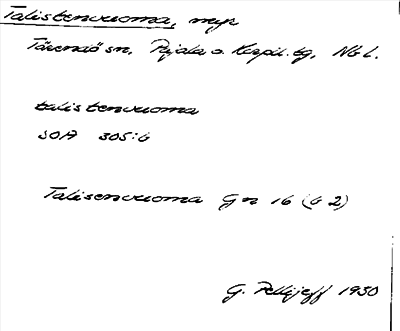 Talistenvuoma, myr
Tärendö sn, Pajala o. Korpil. tg, Nb l.
talistenvuoma
SOA 305:6
Talisenvuoma Gn 16 (G 2)
G. Pellijeff 1950